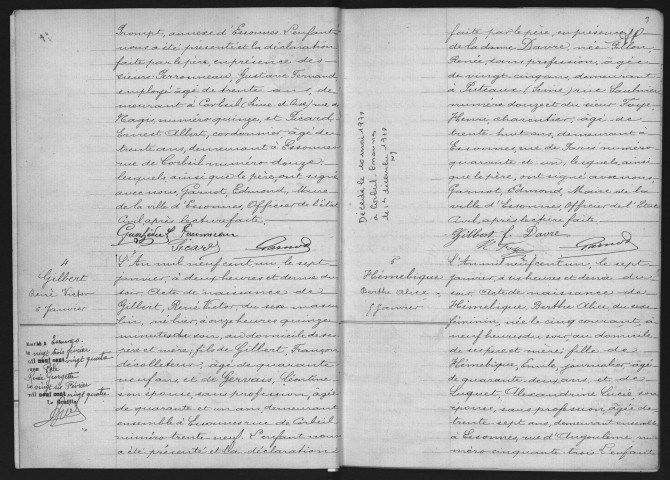 Prompt, annexe d'Essonnes. L'enfant
nous a été présenté et la déclaration
faite par le père, en présence des
sieurs: Perronneau, Gustave Fernand,
employé âgé de trente ans, de-
meurant à Corbeil (Seine et Oise) rue du
numéro quinze, et Picard
Ernest Albert, cordonnier, âgé de
trente ans, demeurant à Essonnes
rue de Corbeil numéro douze
lesquels ainsi que le père, ont signé
avec nous, Garnot, Edmond, Maire
de la ville d'Essonnes, Officier de l'état
Civil, après lecture faite.
Picard Garnot
4
Gilbert
René Victor
6 Janvier
L'An mil neuf cent un, le sept
janvier, à deux heures et demie du
soir. Acte de naissance de
Gilbert, René Victor du sexe mascu-
lin, né hier, à onze heures quinze
minutes du soir, au domicile de ses
père et mère; fils de Gilbert, François
décolleteur, âgé de quarante
neuf ans et de Gervais, Léontine
son épouse, sans profession, âgée
de quarante et un ans, demeurant
ensemble à Essonnes rue de Corbeil
numéro trente neuf. L'enfant nous
a été présenté et la déclaration
le vingt trois février
mil neuf cent vingt quatre
avec
Georgette
mil neuf cent vingt quatre
Le Greffier
3
faite par le père, en présence
de la dame Davre née
Renée, sans profession, âgée
de vingt cinq ans, demeurant
à Puteaux (Seine) rue Saulnier
numéro douze et du sieur
Henri, charcutier, âgé de
trente huit ans, demeurant à
Essonnes, rue de Paris numéro
quarante et un, lesquels ainsi
que le père, ont signé avec nous
Garnot, Edmond Maire de la
ville d'Essonnes, Officier de l'État
Civil, après lecture faite.
Gilbert f. Davre
Garnot
Décédée le 10 mai 1970
à Corbeil-Essonnes
5
Hémelsique
Berthe Alice
5 Janvier
L'An mil neuf cent un, le sept
janvier, à six heures et demie du
soir. Acte de naissance de
Hémelsique, Berthe Alice, du sexe
féminin, née le cinq courant, à
neuf heures du soir, au domicile
de ses père et mère; fille de
Hémelsique, Émile, journalier, âgé
de quarante deux ans, et de
Luguet, Alexandrine Lucie son
épouse, sans profession âgée de
trente sept ans, demeurant ensemble
à Essonnes, rue d'Angoulême nu-
méro cinquante trois. L'enfant